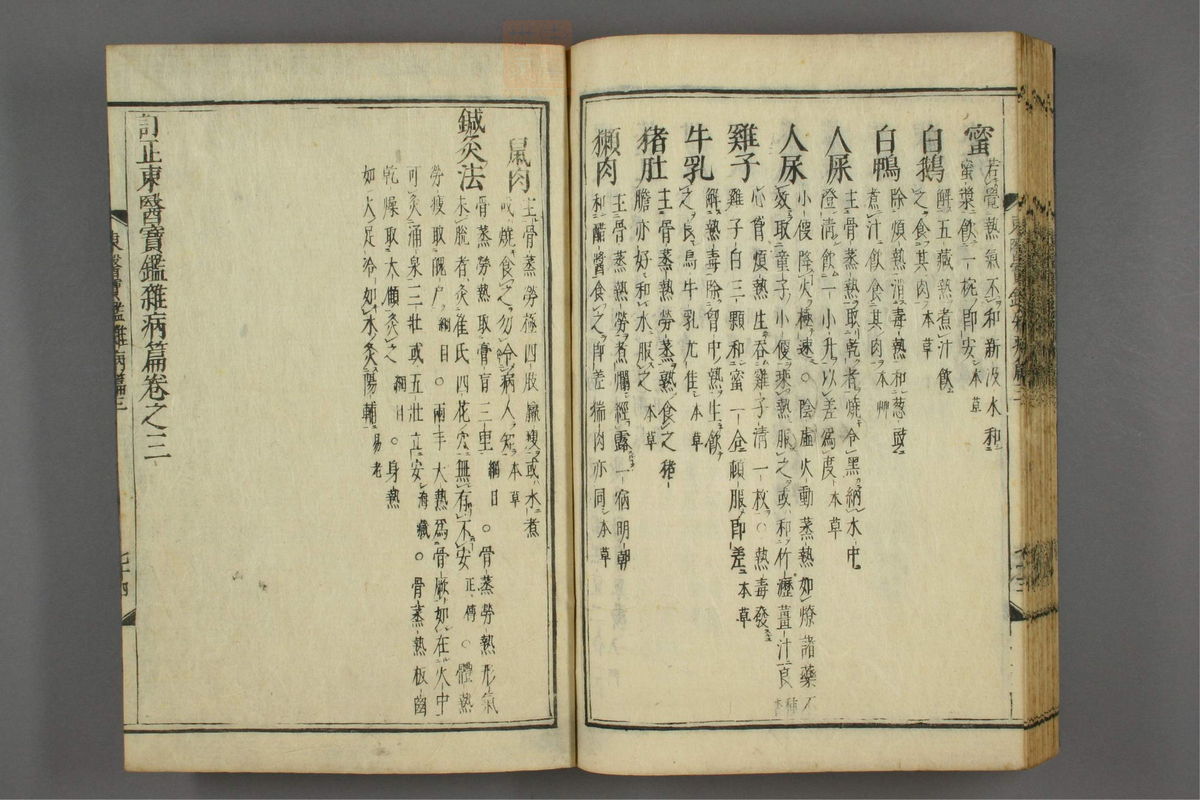 蜜 若覺熱氣不和新汲水和
蜜漿飲一椀即安 本草
白鵝 解五藏熱煮汁飮
之食其肉 本草
白鴨 除煩熱消毒熱和葱豉
煮汁飮食其肉 本草
人屎 主骨蒸熱取乾者燒令黑納水中
澄淸飮一小升以差爲度 本草
人尿 小便降火極速○陰虛火動蒸熱如燎諸藥不
效取童子小便乘熱服之或和竹瀝薑汁良
雞子 心胷煩熱生呑雞子淸一枚○熱毒發
雞子白三顆和蜜一合頓服即差 本草
牛乳 解熱毒除胷中熱生飮
之良烏牛乳尤佳 本草
猪肚 主骨蒸熱勞蒸熟食之猪
膽亦好和水服之 本草
獺肉 主骨蒸熱勞煮爛經露一宿明朝
和醋醬食之即差 猯肉亦同 本草
鼠肉 主骨蒸勞極四肢羸瘦或水煮
或燒食之勿令病人知 本草
鍼灸法 骨蒸勞熱取膏肓三里 綱目 ○骨蒸勞熱形氣
未脫者灸崔氏四花穴無有不安 正傳 ○體熱
勞瘦取魄戶 綱目 ○兩手大熱爲骨厥如在火中
可灸涌泉三壯或五壯立安 海藏 ○骨蒸熱板齒
乾燥取大顀灸之 綱目 ○身熱
如火足冷如氷灸陽輔 易老
訂正東醫寶鑑雜病篇卷之三
東醫寶鑑雜病篇三